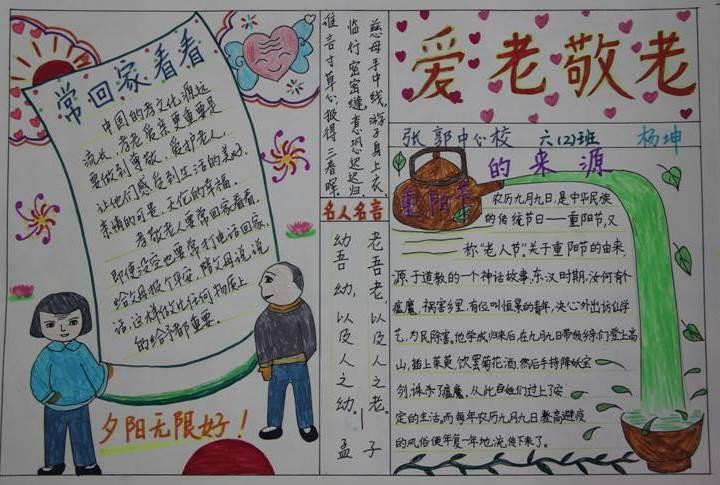 常回家看看
中国的孝文化源远
流长,孝老爱亲更重要是
要做到尊敬、爱护老人,
让他们感受到生活的美好,
亲情的可贵,文化的幸福。
孝敬老人要常回家看看,
即使没空也要常打电话回家,
给父母报个平安,陪父母说说
话,这样做比任何物质上
的给予都重要。
夕阳无限好!
慈母手中线,游子身上衣,
临行密密缝,意恐迟迟归。
谁言寸草心,报得三春晖。
名人名言
老吾老,以及人之老。
幼吾幼,以及人之幼。
——孟子
爱老敬老
张郭中心校 六(2)班 杨坤
重阳节的来源
农历九月九日,是中华民族
的传统节日——重阳节,又
称“老人节”。关于重阳节的由来,
源于道教的一个神话故事,东汉时期,汝何有个
瘟魔,祸害乡里,有位叫恒景的青年,决心外出访仙学
艺,为民除害,他学成归来后,在九月九日带领乡亲们登上高
山,插上茱萸,饮罢菊花酒,然后手持降妖宝
剑,诛杀了瘟魔,从此百姓们过上了安
定的生活,而每年农历九月九日登高避疫
的风俗便年复一年地流传下来了。